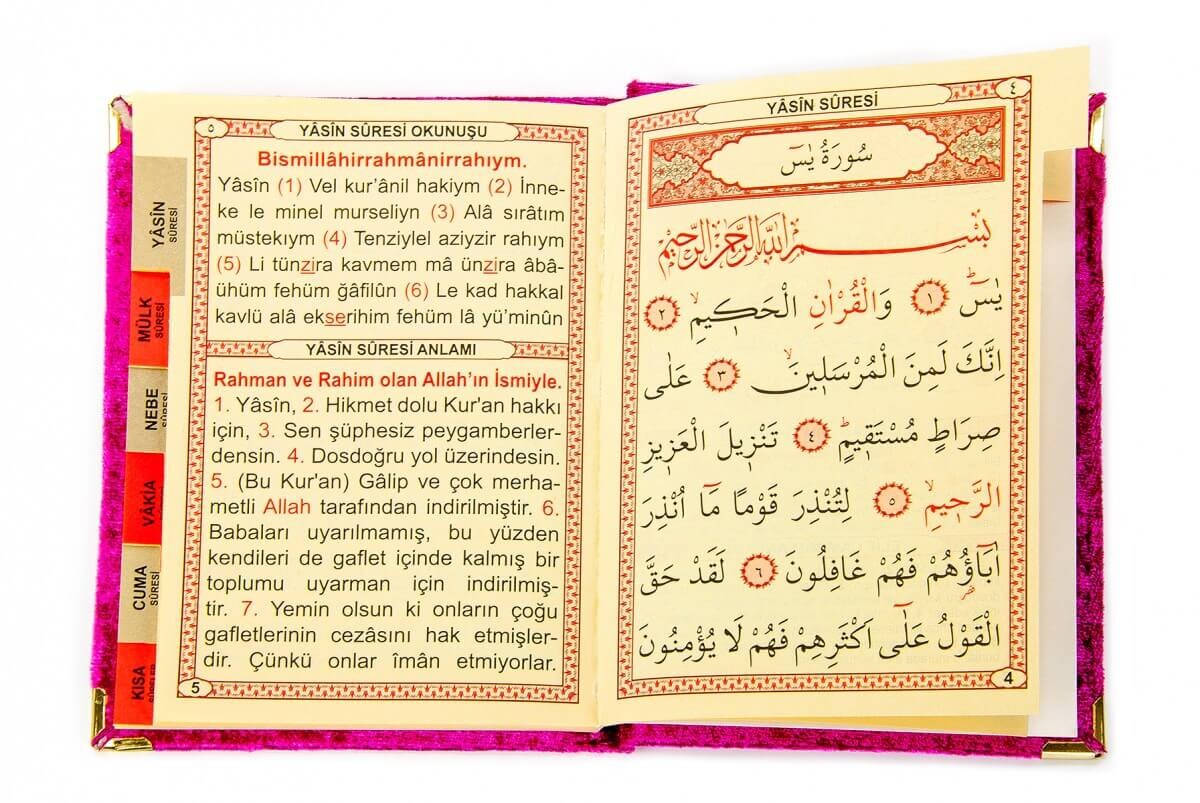 ٤
YÂSÎN SÛRESİ
سُورَةُ يٰسٓ
بِسْمِ اللّٰهِ الرَّحْمٰنِ الرَّحِيمِ
يٰسٓ ۚ ﴿١﴾ وَالْقُرْاٰنِ الْحَكِيمِۙ ﴿٢﴾
اِنَّكَ لَمِنَ الْمُرْسَلِينَۙ ﴿٣﴾ عَلٰى
صِرَاطٍ مُسْتَقِيمٍۜ ﴿٤﴾ تَنْزِيلَ الْعَزِيزِ
الرَّحِيمِۙ ﴿٥﴾ لِتُنْذِرَ قَوْمًا مَٓا اُنْذِرَ
اٰبَٓاؤُ۬هُمْ فَهُمْ غَافِلُونَ ﴿٦﴾ لَقَدْ حَقَّ
الْقَوْلُ عَلٰٓى اَكْثَرِهِمْ فَهُمْ لَا يُؤْمِنُونَ
4
٥
YÂSÎN SÛRESİ OKUNUŞU
Bismillâhirrahmânirrahıym.
Yâsîn (1) Vel kur’ânil hakiym (2) İnne-
ke le minel murseliyn (3) Alâ sırâtım
müstekıym (4) Tenziylel aziyzir rahıym
(5) Li tünzira kavmem mâ ünzira âbâ-
ühüm fehüm ğafilûn (6) Le kad hakkal
kavlü alâ ekserihim fehüm lâ yü’minûn
YÂSÎN SÛRESİ ANLAMI
Rahman ve Rahim olan Allah’ın İsmiyle.
1. Yâsîn, 2. Hikmet dolu Kur'an hakkı
için, 3. Sen şüphesiz peygamberler-
densin. 4. Dosdoğru yol üzerindesin.
5. (Bu Kur'an) Gâlip ve çok merha-
metli Allah tarafından indirilmiştir. 6.
Babaları uyarılmamış, bu yüzden
kendileri de gaflet içinde kalmış bir
toplumu uyarman için indirilmiş-
tir. 7. Yemin olsun ki onların çoğu
gafletlerinin cezâsını hak etmişler-
dir. Çünkü onlar îmân etmiyorlar.
5
YÂSÎN
SÛRESİ
MÜLK
SÛRESİ
NEBE
SÛRESİ
VÂKİA
SÛRESİ
CUMA
SÛRESİ
KISA
SÛRELER